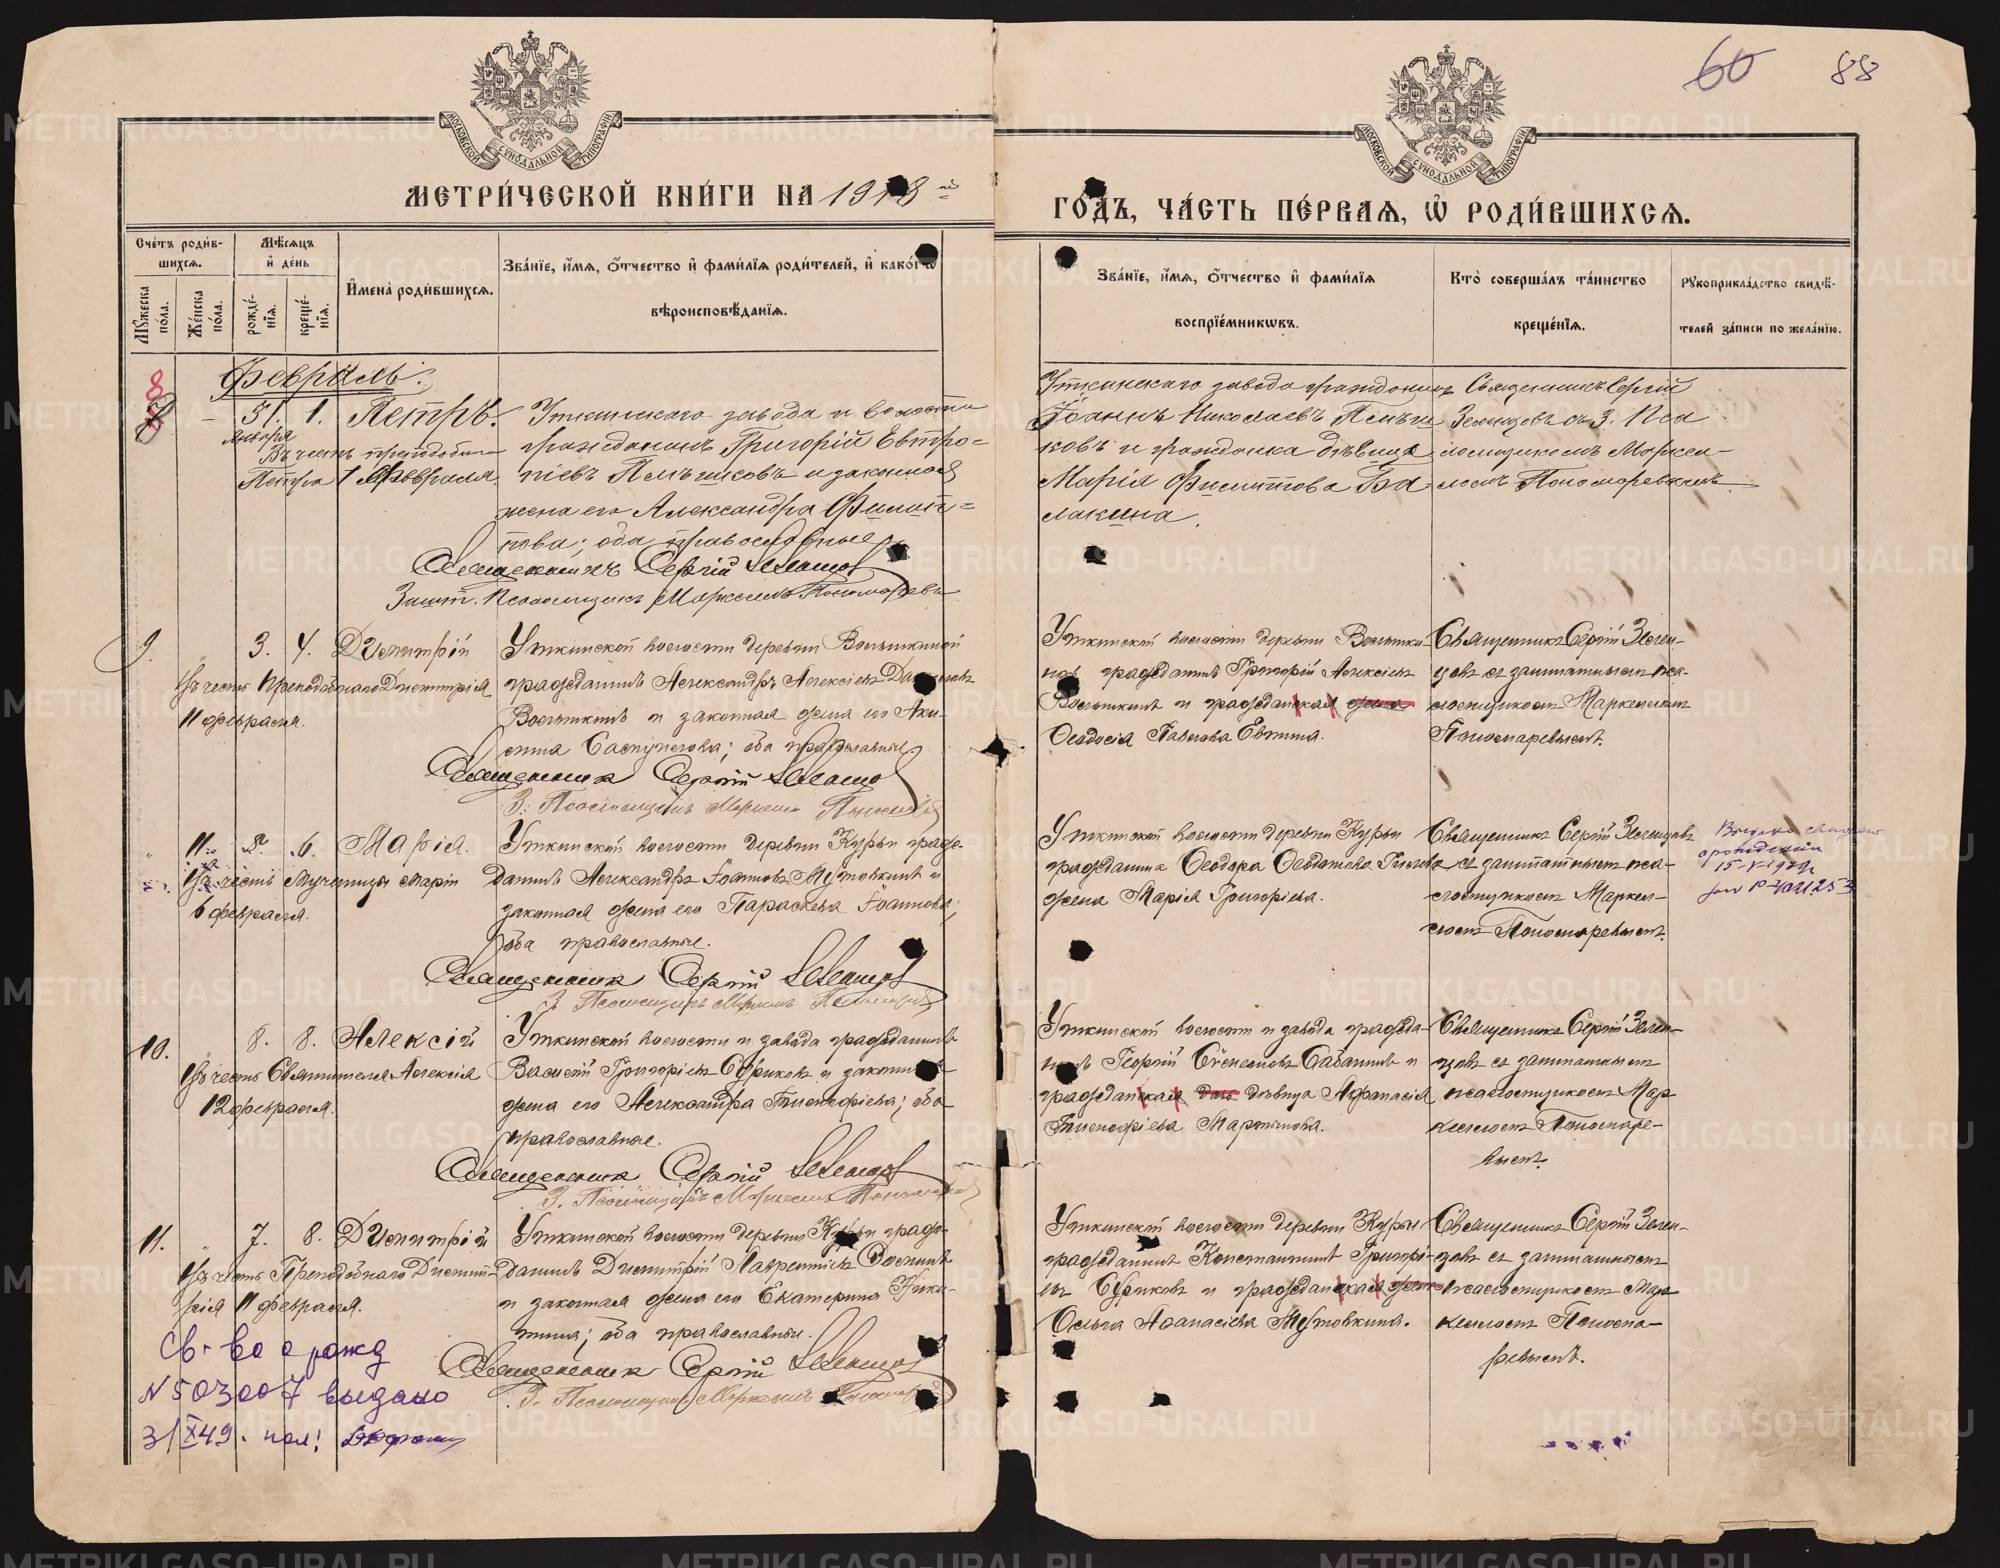 60 88
МОСКОВСКОЙ СУНОДАЛЬНОЙ ТИПОГРАФІИ
МОСКОВСКОЙ СУНОДАЛЬНОЙ ТИПОГРАФІИ
МЕТРИ́ЧЕСКОЙ КНИ́ГИ НА 1918 й
ГО́ДЪ, ЧА́СТЬ ПЕ́РВАѦ, Ѡ РОДИ́ВШИХСѦ.
Сче́тъ роди́в-
шихсѧ.
Мꙋжеска по́ла.
Же́нска по́ла.
Мѣ́сѧцъ и де́нь
рожде́-нїѧ.
креще́-нїѧ.
И҆мена̀ роди́вшихсѧ.
Зва́нїе, и҆́мѧ, ѻ҆́тчество и҆ фами́лїѧ роди́телей, и҆ како́гѡ
вѣроисповѣ́данїѧ.
Зва́нїе, и҆́мѧ, ѻ҆́тчество и҆ фами́лїѧ
воспрїе́мникѡвъ.
Кто̀ соверша́лъ та́инство
креще́нїѧ.
Рꙋкоприкла́дство свидѣ́-
телей за́писи по жела́нїю.
Февраль.
8 31. 1. Петръ.
Января
Въ честь преподобнаго
Петра 1 Февраля.
Уткинскаго завода и волости
гражданинъ Григорій Евтро-
піевъ Плѣшковъ и законная
жена его Александра Филип-
пова; оба православные
Священникъ Сергій
Зашт. Псаломщикъ Маркеллъ Пономаревъ
Уткинскаго завода гражданинъ
Іоаннъ Николаевъ Плѣш
ковъ и гражданка дѣвица
Марія Филиппова Ба-
лакина.
Священникъ Сергій
съ З. Пса
ломщикомъ Маркел-
ломъ Пономаревымъ.
9. 3. 4. Димитрій
Въ честь Преподобнаго Димитрія
11 февраля.
Уткинской волости деревни
гражданинъ Александръ Алексіевъ
и законная жена его Аки-
лина; оба православные.
Священникъ Сергій
З. Псаломщикъ Маркеллъ
Уткинской волости деревни
гражданинъ Григорій Алексіевъ
и гражданская жена
Ѳеодосія Павлова
Священникъ Сергій
съ заштатнымъ пса-
ломщикомъ Маркелломъ
Пономаревымъ.
11. 5. 6. Марія.
Въ честь мученицы Маріи
6 февраля.
Уткинской волости деревни Курьи граж-
данинъ Александръ Іоанновъ Мутовкинъ и
законная жена его Параскева Іоаннова;
оба православные.
Священникъ Сергій
З. Псаломщикъ Маркеллъ Пономаревъ
Уткинской волости деревни Курьи
гражданина Ѳеодора Ѳеодотова
жена Марія Григоріева.
Священникъ Сергій
съ заштатнымъ пса-
ломщикомъ Маркел-
ломъ Пономаревымъ.
10. 8. 8. Алексій
Въ честь Святителя Алексія
12 февраля.
Уткинской волости и завода гражданинъ
Василій Григорьевъ Суриковъ и законная
жена его Александра Тимофіева; оба
православные.
Священникъ Сергій
З. Псаломщикъ Маркеллъ Пономаревъ
Уткинской волости и завода гражда-
нинъ Георгій Сабанинъ и
гражданская дѣвица Афанасія
Тимофіева Мартьянова.
Священникъ Сергій
съ заштатнымъ
псаломщикомъ Мар
келломъ Пономаре-
вымъ.
11. 7. 8. Димитрій
Въ честь Преподобнаго Димит-
рія 11 февраля.
Уткинской волости деревни Курьи граж-
данинъ Димитрій Лаврентіевъ
и законная жена его Екатерина Ники-
тина; оба православные.
Священникъ Сергій
З. Псаломщикъ Маркеллъ
Уткинской волости деревни Курьи
гражданинъ Константинъ Григорі-
евъ Суриковъ и гражданская
Ольга Аѳанасіева Мутовкина.
Священникъ Сергій
съ заштатнымъ
псаломщикомъ Мар
келломъ Понома-
ревымъ.
Св-во о рожд
N 503007 выдано
3/X 49.